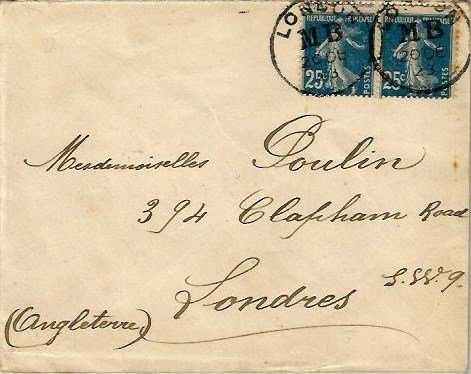 LONDON
MB
LONDON
MB
REPUBLIQUE FRANÇAISE
25c POSTES
REPUBLIQUE FRANÇAISE
25c POSTES
Mesdemoiselles Poulin
394 Clapham Road
S.W.9.
Londres
(Angleterre)